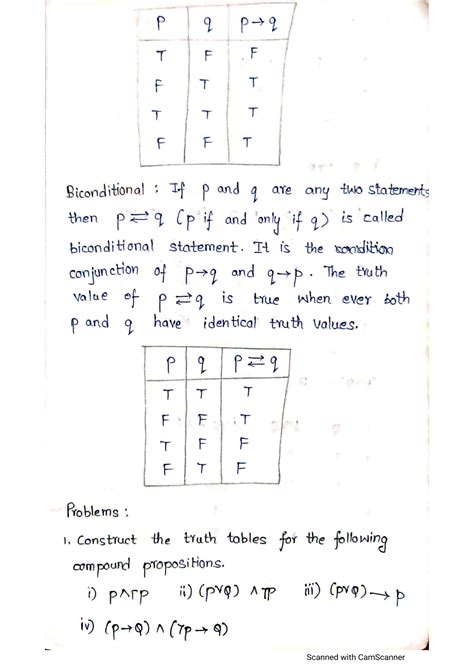 p q p→q
T F F
F T T
T T T
F F T
Biconditional : If p and q are any two statements
then p⇄q (p if and only if q) is called
biconditional statement. It is the condition
conjunction of p→q and q→p. The truth
value of p⇄q is true when ever both
p and q have identical truth values.
p q p⇄q
T T T
F F T
T F F
F T F
Problems :
1. Construct the truth tables for the following
compound propositions.
i) p∧┌p ii) (p∨Q) ∧ ┐p iii) (p∨Q) → p
iv) (p→Q) ∧ (┐p→Q)
Scanned with CamScanner